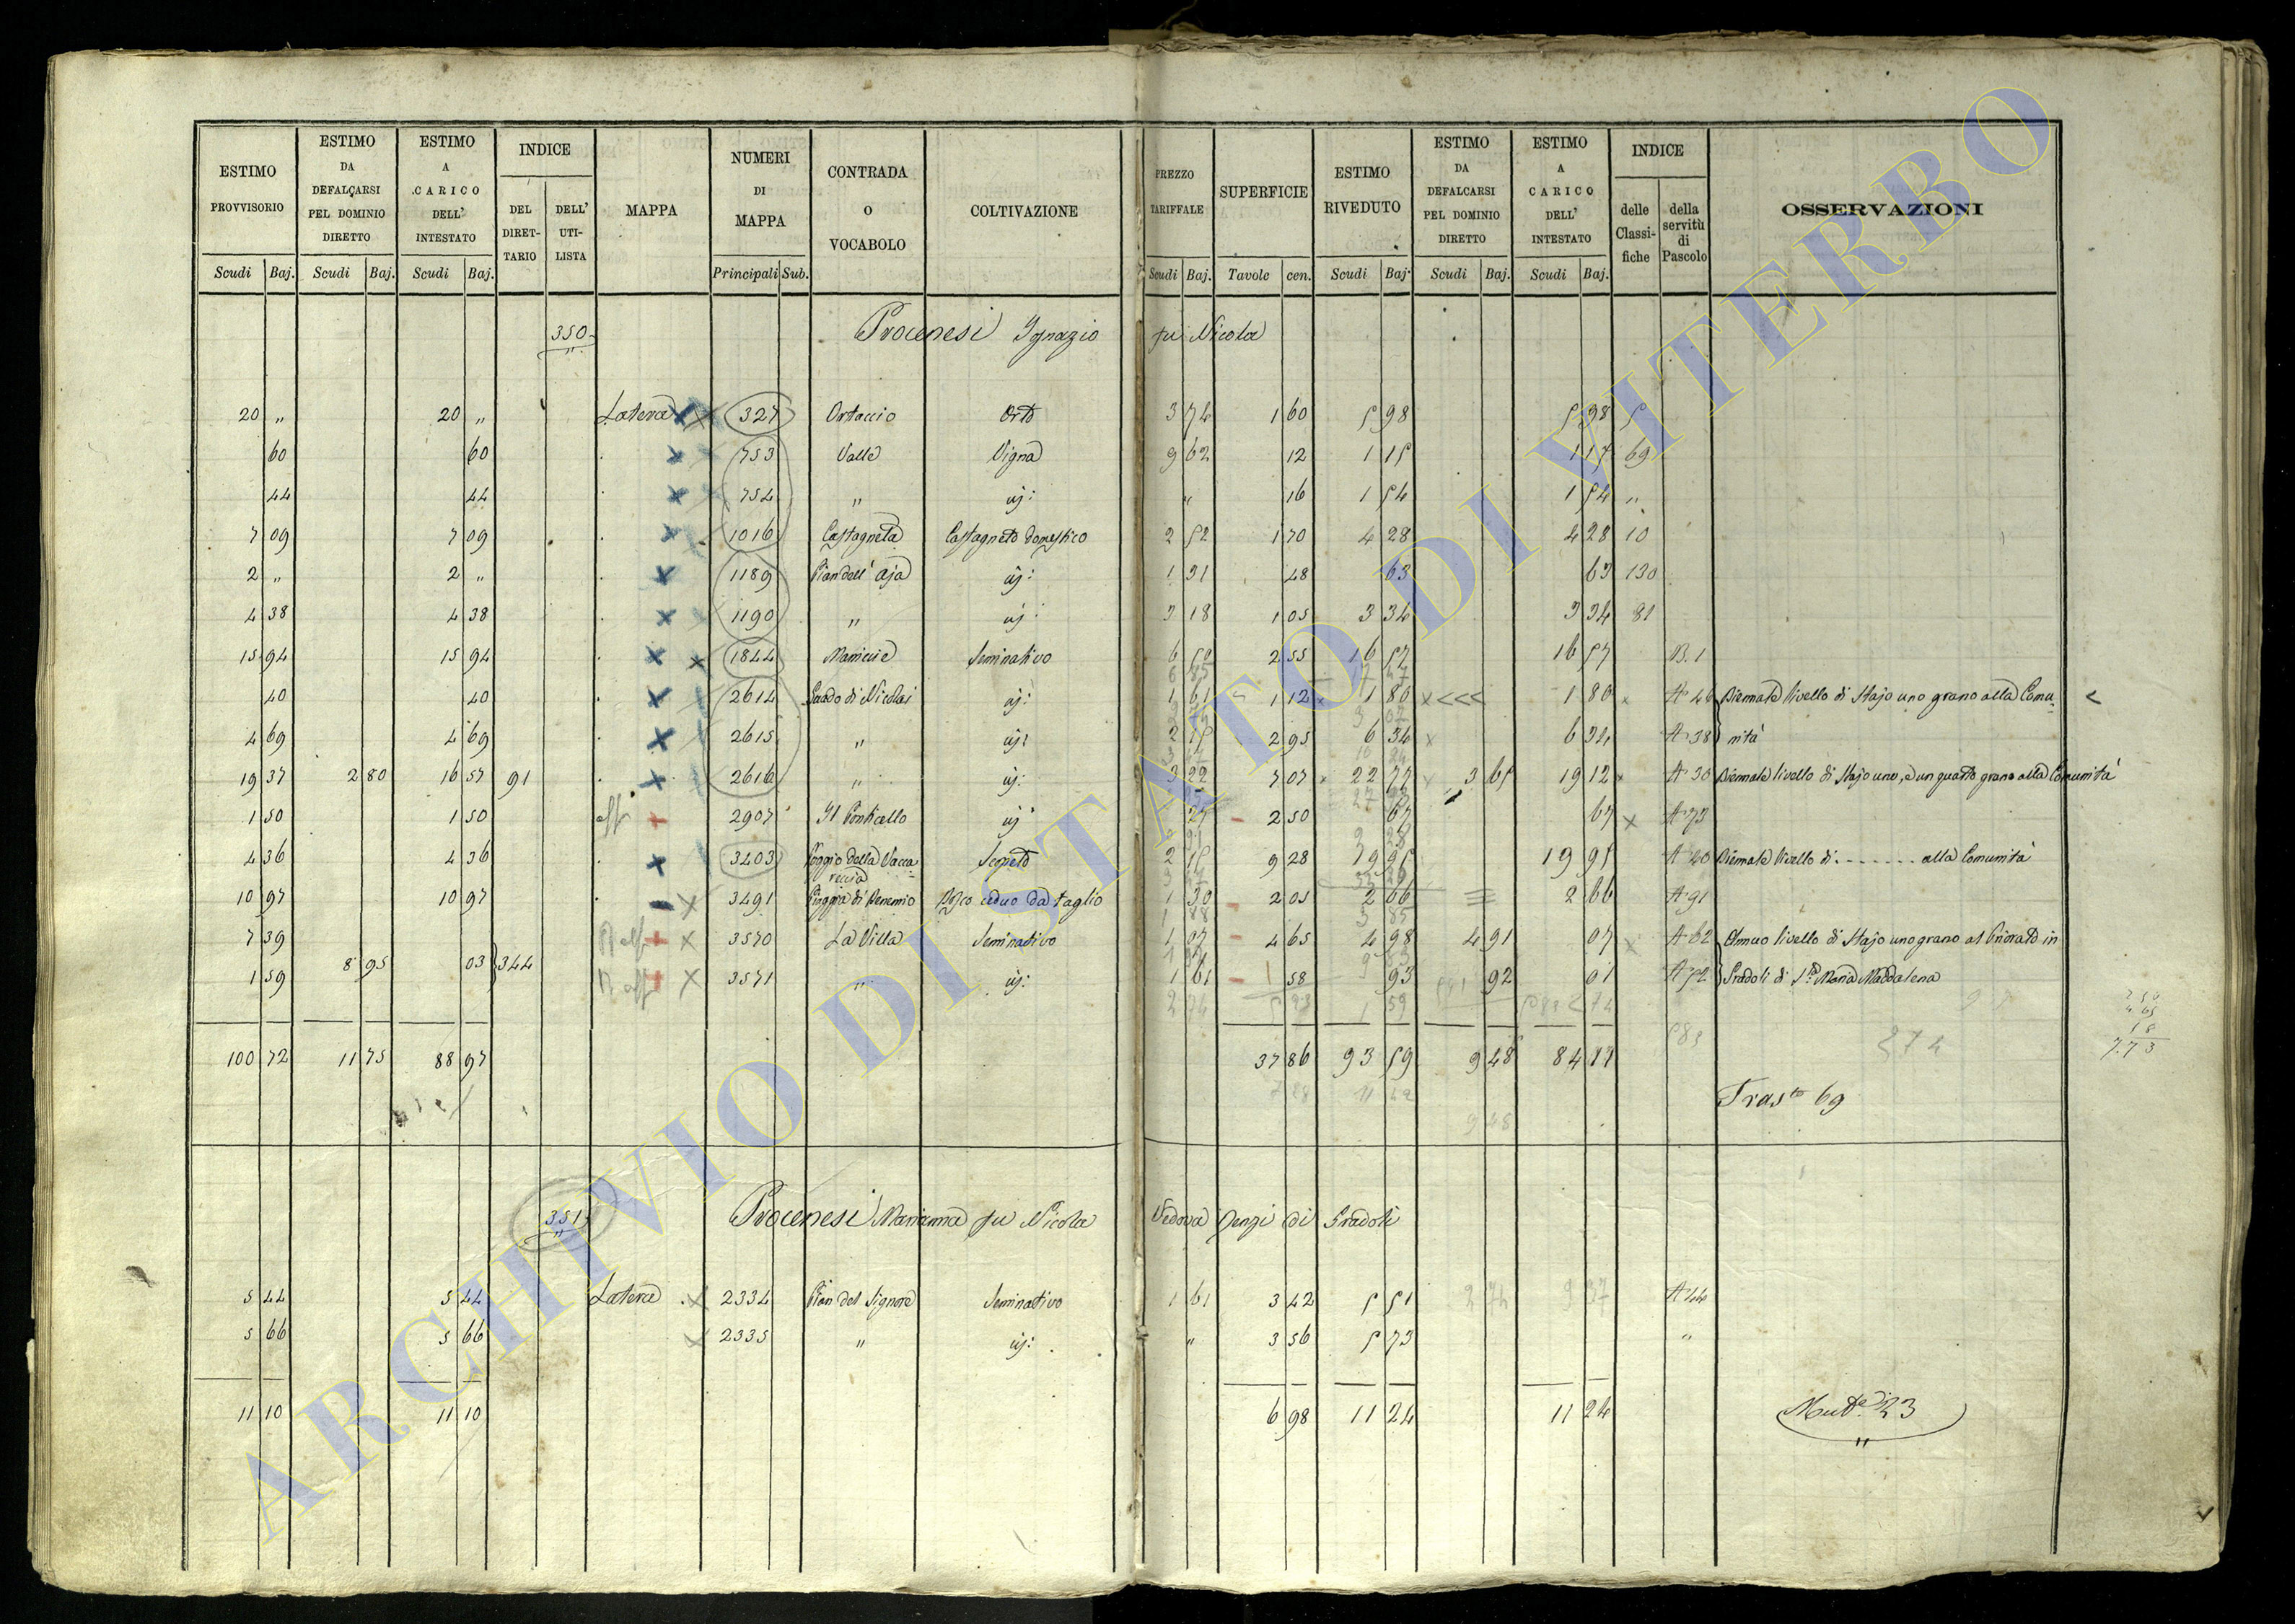 ESTIMO PROVVISORIO Scudi Baj. | ESTIMO DA DEFALCARSI PEL DOMINIO DIRETTO Scudi Baj. | ESTIMO A CARICO DELL' INTESTATO Scudi Baj. | INDICE DEL DIRETTARIO DELL' UTILISTA | MAPPA | NUMERI DI MAPPA Principali Sub. | CONTRADA O VOCABOLO | COLTIVAZIONE | PREZZO TARIFFALE Scudi Baj. | SUPERFICIE Tavole cen. | ESTIMO RIVEDUTO Scudi Baj. | ESTIMO DA DEFALCARSI PEL DOMINIO DIRETTO Scudi Baj. | ESTIMO A CARICO DELL' INTESTATO Scudi Baj. | INDICE delle Classifiche della servitù di Pascolo | OSSERVAZIONI
350 Procenesi Ignazio fu Nicola
20 „ 20 „ Latera 327 Ortaccio Orto 3 74 1 60 5 98 5 98 5
60 60 753 Valle Vigna 9 62 12 1 15 1 15 69
44 44 754 „ uj: „ 16 1 54 1 54 „
7 09 7 09 1016 Castagneta Castagneto domestico 2 52 1 70 4 28 4 28 10
2 „ 2 „ 1189 Pian dell' Aja uj: 1 31 48 63 63 130
4 38 4 38 1190 „ uj: 3 18 1 05 3 34 3 34 81
15 94 15 94 1844 Seminativo 6 50 2 55 16 57 16 57 B. 1
40 40 2614 Guado di Nicolai uj: 1 61 1 12 1 80 1 80 A 46 Biennale livello di Stajo uno grano alla Comu-
4 69 4 69 2615 „ uj: 2 15 2 95 6 34 6 34 A 38 nità
19 37 2 80 16 57 91 2616 „ uj: 3 22 7 07 22 77 3 65 19 12 A 30 Biennale livello di Stajo uno, e un quarto grano alla Comunità
1 50 1 50 2907 Il Ponticello uj: 27 2 50 67 67 A 73
4 36 4 36 3403 Poggio della Vaccareccia Scopeto 2 15 9 28 19 95 19 95 A 40 Biennale livello di . . . . . . . alla Comunità
10 97 10 97 3491 Bosco ceduo da taglio 1 30 2 05 2 66 2 66 A 91
7 39 3570 La Villa Seminativo 1 07 4 65 4 98 4 91 07 A 62 Annuo livello di Stajo uno grano al Priorato in
1 59 8 95 03 344 3571 „ uj: 1 61 58 93 92 01 A 52 Gradoli di S.ta Maria Maddalena
100 72 11 75 88 97 37 86 93 59 9 48 84 11
Tras.to 69
351 Procenesi Marianna fu Nicola Vedova Penzi di Gradoli
5 44 5 44 Latera 2334 Pian del Signore Seminativo 1 61 3 42 5 51 A 44
5 66 5 66 2335 „ uj: „ 3 56 5 73 „
11 10 11 10 6 98 11 24 11 24
23
ARCHIVIO DI STATO DI VITERBO